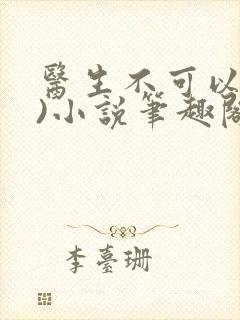 醫生不可以
)小說筆趣閣
李臺珊